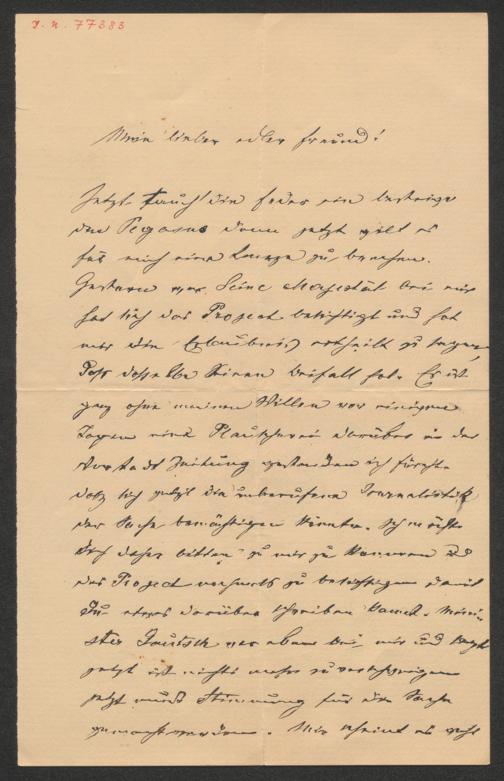 J. N. 77383
Mein lieber edler Freund!
Jetzt tauch' die Feder ein besteige
den Pegasus denn jetzt gilt es
für mich eine Lanze zu brechen.
Gestern war Seine Majestät bei mir
hat sich das Project besichtigt und hat
mir die Erlaubniß ertheilt zu sagen,
Daß dasselbe Seinen Beifall hat. Es ist
ganz ohne meinen Willen vor einigen
Tagen eine Plauscherei darüber in der
Zeitung gestanden ich fürchte
daß sich jetzt die unberufene Journalistik
der Sache bemächtigen könnte. Ich möchte
Dich daher bitten zu mir zu kommen u
das Project nochmals zu besichtigen damit
Du etwas darüber schreiben kannst. Mini-
ster Gautsch war eben bei mir und sagt
jetzt ist nichts mehr zu verschweigen
jetzt muß Stimmung für die Sache
gemacht werden. Mir scheint es wohl